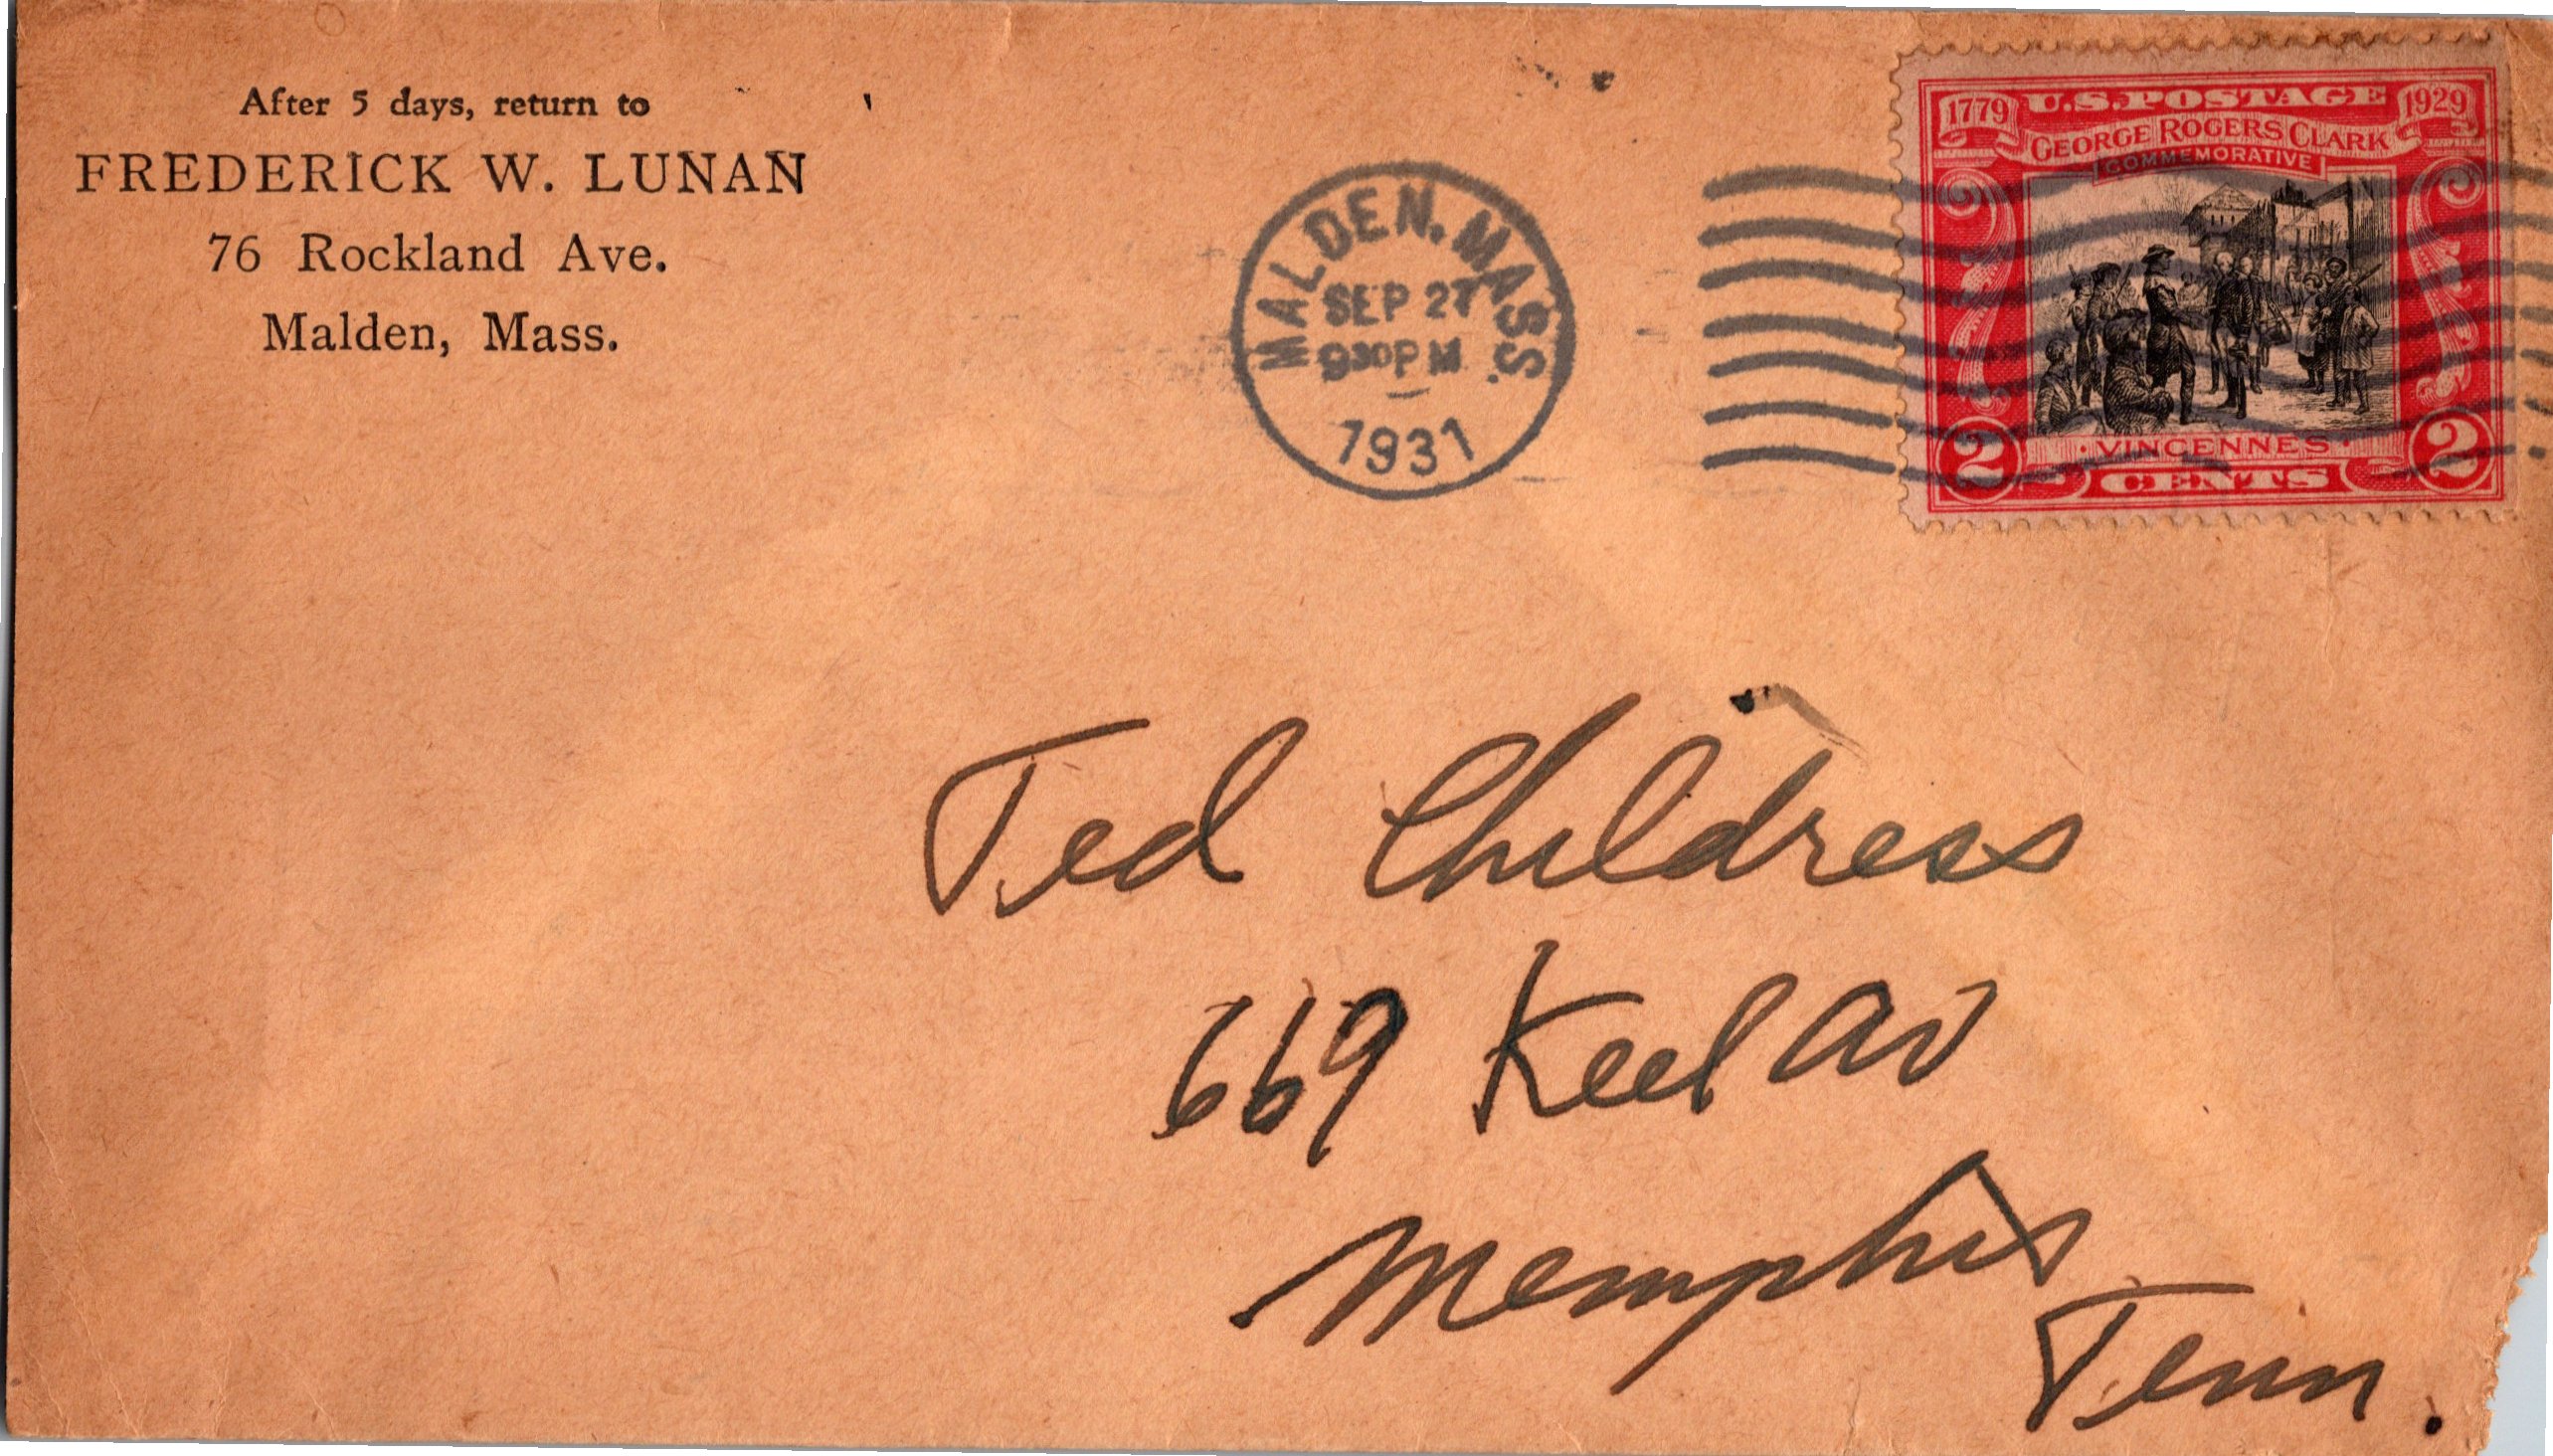 After 5 days, return to
FREDERICK W. LUNAN
76 Rockland Ave.
Malden, Mass.
MALDEN, MASS.
SEP 27
930PM
1931
1779 U.S. POSTAGE 1929
GEORGE ROGERS CLARK
COMMEMORATIVE
VINCENNES
2 CENTS 2
Ted Childress
669 Keel Av
Memphis
Tenn.